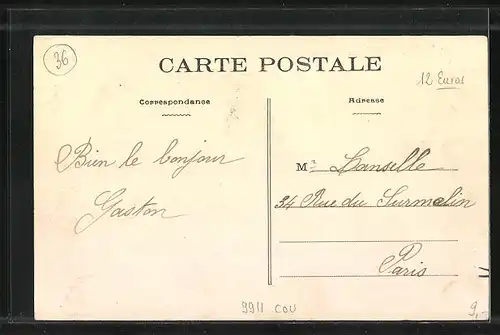 36
CARTE POSTALE
12 Euros
Correspondance
Adresse
Bien le bonjour
Gaston
Mr Hanselle
34 Rue du Surmelin
Paris
9911 COU
9,-